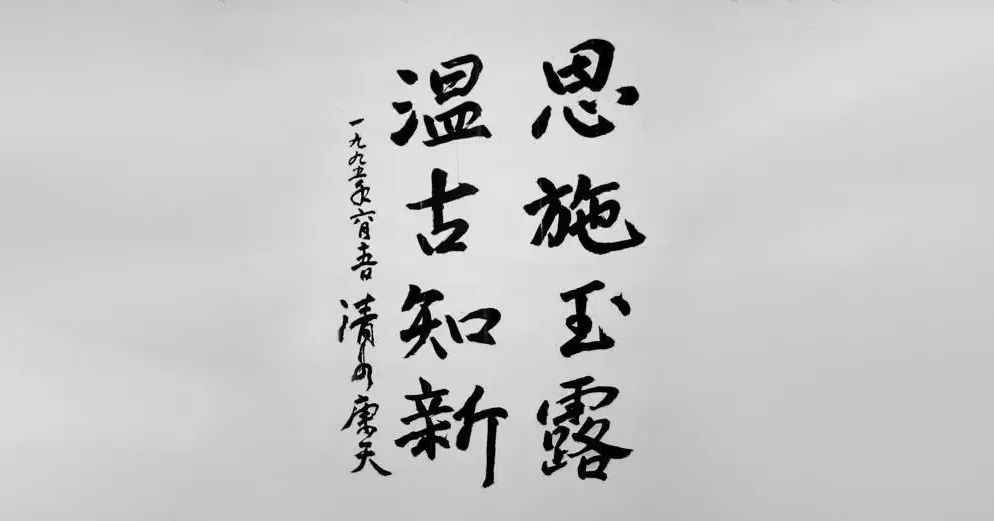 恩施玉露
温古知新
一九九五年六月吉 清水康夫